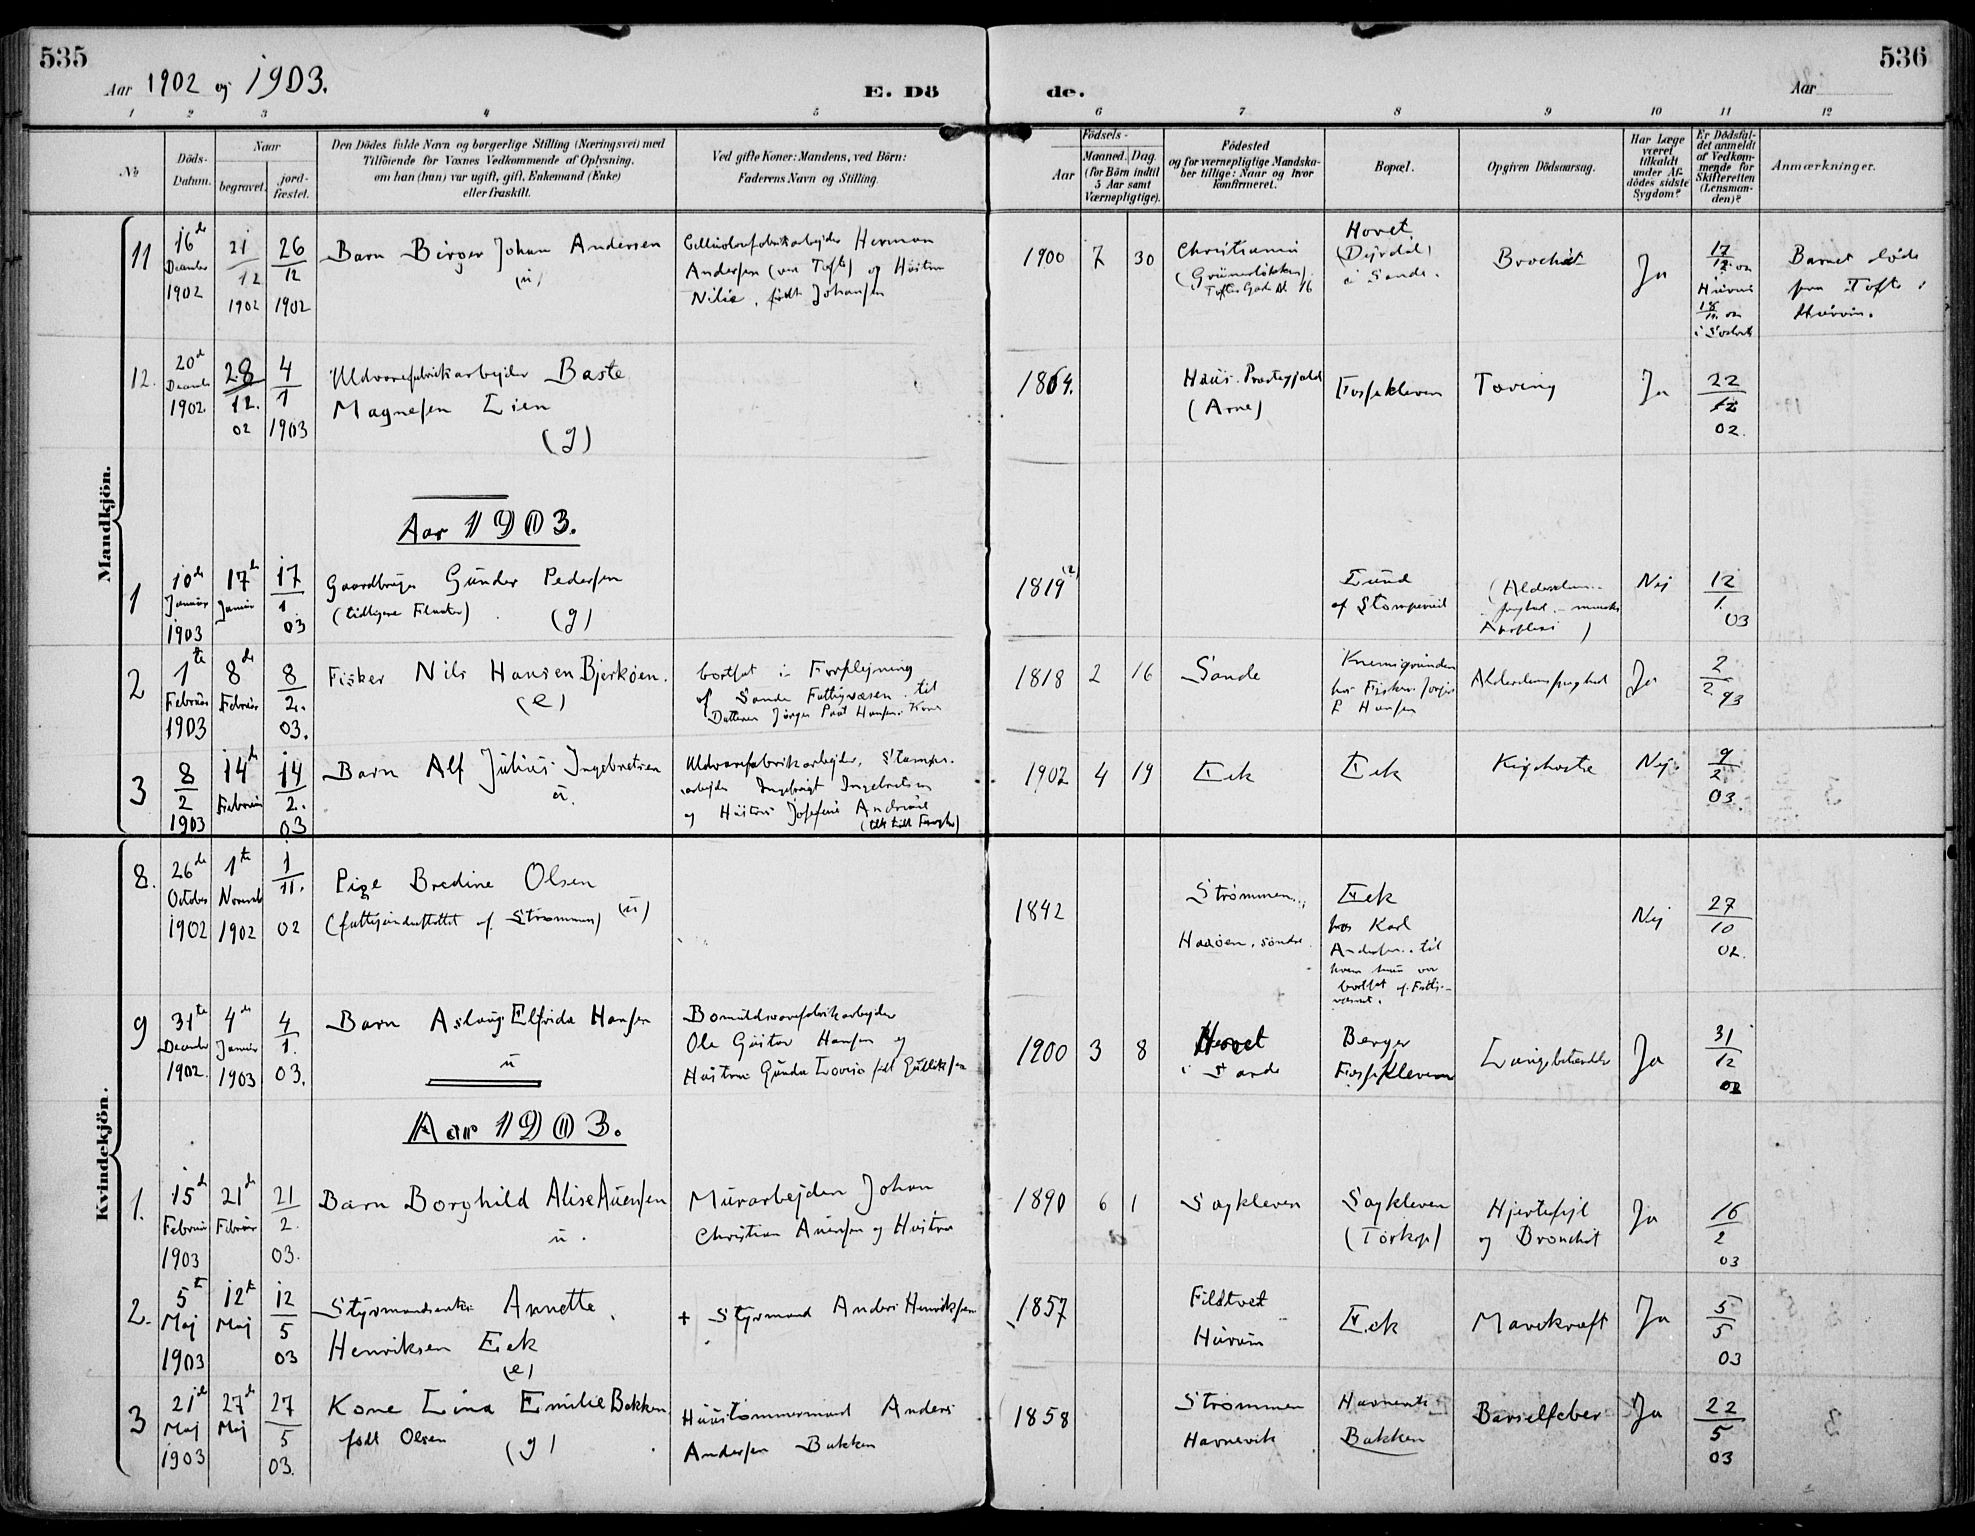 535
536
Aar 1902 og 1903.
E. Dö
de.
Aar
1 2 3 4 5
6 7 8 9 10 11 12
No
Döds-Datum.
Naar
begravet.
jord-fæstet.
Den Dödes fulde Navn og borgerlige Stilling (Næringsvei) med
Tilföiende for Voxnes Vedkommende af Oplysning,
om han (hun) var ugift, gift, Enkemand (Enke)
eller fraskilt.
Ved gifte Koner: Mandens, ved Börn:
Faderens Navn og Stilling.
Födsels-
Aar
Maaned. Dag.
(for Börn indtil
5 Aar samt
Værnepligtige).
Födested
og for værnepligtige Mandska-
ber tillige: Naar og hvor
konfirmeret.
Bopæl.
Opgiven Dödsaarsag.
Har Læge
været
tilkaldt
under Af-
dödes sidste
Sygdom?
Er Dödsfal-
det anmeldt
af Vedkom-
mende for
Skifteretten
(Lensman-
den)?
Anmærkninger.
Mandkjön.
11
16de December 1902
21/12 1902
26/12 1902
Barn Birger Johan Andersen
(u)
Cellulosefabrikarbejder Herman
Andersen (ved Tofte) og Hustru
Nilia, født Johansen
1900 7 30
Christiania
(Grünerløkken)
Toftes Gade No 16
Hovet
(Dejrdal)
i Sande.
Brochit
Ja
17/12 02
Hurum
18/12 02
Barnet døde
paa Tofte i
Hurum.
12.
20de December 1902
28/12. 02
4/1 1903
Uldvarefabrikarbejder Baste
Magnesen Lien
(g)
1864.
Haus Præstegjæld
(Arne)
Fossekleven
Tæring
Ja
22/12 02.
Aar 1903.
1
10de Januar 1903
17de Januar
17/1 03
Gaardbruger Gunder Pedersen
(tidligere Fløder)
(g)
1819
Lund
af Stompeveit
(Alderdoms-
Apoplexi)
Nej
12/1. 03
2
1te Februar 1903
8de Februar
8/2. 03.
Fisker Nils Hansen Bjerkøen.
(e)
bortsat i Forplejning
af Sande Fattigvæsen til
Datteren Jørgen Paal Hansens Kone
1818 2 16
Sande
hos Fisker
Hansen
Alderdomssvaghed
Ja
2/2 03
3
8/2 1903
14de Februar
14/2. 03
Barn Alf Julius Ingebretsen
u.
Uldvarefabrikarbejder, Stampe-
arbejder Ingebrigt Ingebretsen
og Hustru Josefine
1902 4 19
Eek
Eek
Kighoste
Nej
9/2 03.
Kvindekjön.
8.
26de October 1902
1te Novemb 1902
1/11. 02
Pige Bredine Olsen
(fattigunderstøttet af Strømmen) (u)
1842
Strømmen
Haaøen, søndre
Eek
hos Karl
Andersen til
hvem hun var
bortsat af Fattig-
væsnet.
Nej
27/10 02.
9
31te December 1902.
4de Januar 1903
4/1. 03.
Barn Aslaug Elfrida Hansen
u
Bomuldsvarefabrikarbejder
Ole Gustav Hansen og
Hustru Gunda Lovise født Gulliksen
1900 3 8
Hovet
i Sande
Berger
Fossekleven
Lungebetændelse
Ja
31/12 02
Aar 1903.
1.
15de Februar 1903
21de Februar
21/2. 03.
Barn Borghild Alise Auensen
u.
Murarbejder Johan
Christian Auensen og Hustru
1890 6 1
Saykleven
Saykleven
(Torkop)
Hjertefejl
og Bronchit
Ja
16/2 03
2.
5te Maj 1903
12te Maj
12/5 03
Styrmandsenke Annette
Henriksen Eek
(e)
+ Styrmand Anders Henriksen
1857
Filstvet
Hurum
Eek
Mavekræft
Ja
5/5 03
3
21de Maj 1903
27de Maj
27/5 03.
Kone Lina Emilie Bakken
født Olsen
(g)
Huustømmermand Anders
Andersen Bakken
1858
Strømmen
Havnevik
Havnevik
Bakken
Barselfeber
Ja
22/5 03